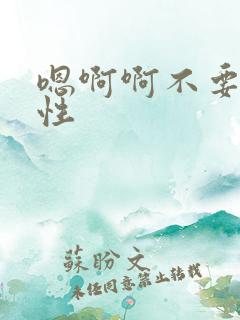 嗯啊啊不要
性
蘇盼文
未经同意禁止转载